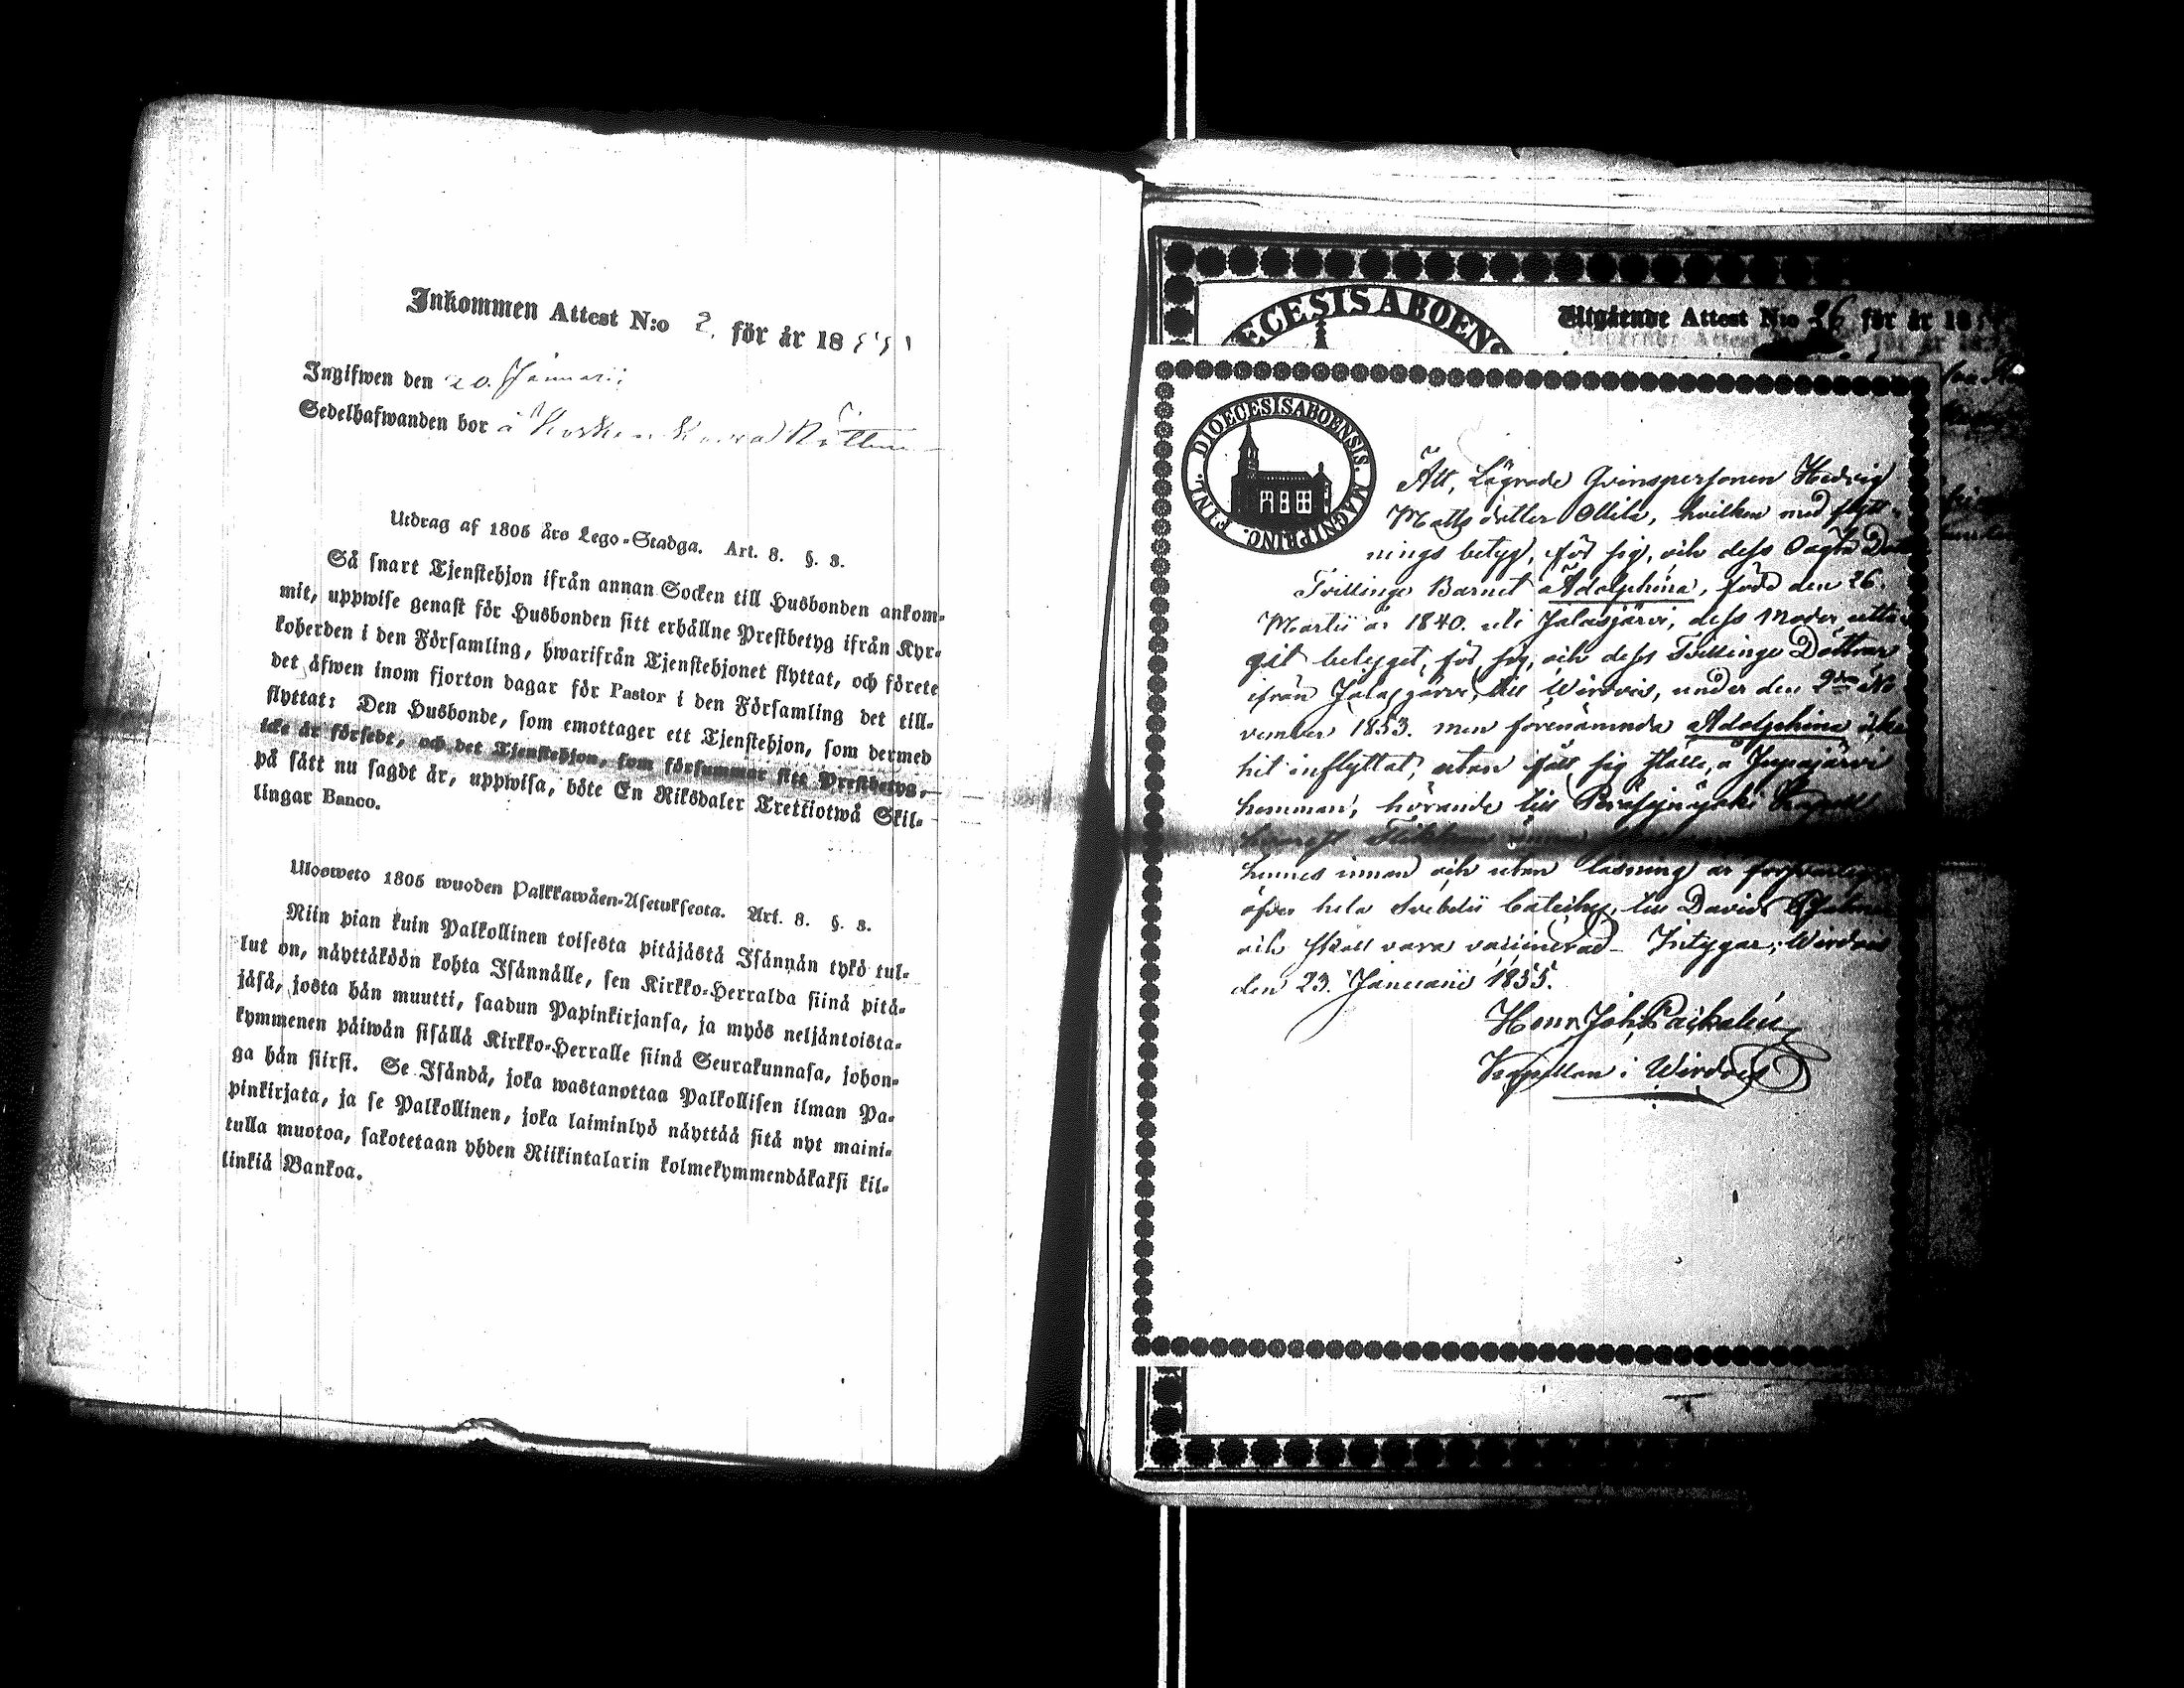 Inkommen Attest N:o 2. för år 1855
Ingifwen den 20. Januarii
Sedelhafwanden bor å
Utdrag af 1805 års Lego-Stadga. Art. 8. §. 3.
Så snart Tjenstehjon ifrån annan Socken till Husbonden ankom-
mit, uppwise genast för Husbonden sitt erhållne Prestbetyg ifrån Kyr-
koherden i den Församling, hwarifrån Tjenstehjonet flyttat, och förete
det äfwen inom fjorton dagar för Pastor i den Församling det till-
flyttat: Den Husbonde, som emottager ett Tjenstehjon, som dermed
icke är försedt, och det Tjenstehjon, som försummar sitt Prestbetyg,
på sätt nu sagdt är, uppwisa, böte En Riksdaler Trettiotwå Skil-
lingar Banco.
Ulosweto 1805 wuoden Palkkawäen-Asetuksesta. Art. 8. §. 3.
Niin pian kuin Palkollinen toisesta pitäjästä Isännän tykö tul-
lut on, näyttäköön kohta Isännälle, sen Kirkko-Herralda siinä pitä-
jäsä, josta hän muutti, saadun Papinkirjansa, ja myös neljäntoista-
kymmenen päiwän sisällä Kirkko-Herralle siinä Seurakunnasa, johon-
ga hän siirsi. Se Isändä, joka wastanottaa Palkollisen ilman Pa-
pinkirjata, ja se Palkollinen, joka laiminlyö näyttää sitä nyt maini-
tulla muotoa, sakotetaan yhden Riikintalarin kolmekymmendäkaksi kil-
linkiä Bankoa.
ECESIS ABOEN
Utgående Attest N:o 26 för år 18
FINL. DIOECESIS ABOENSIS. MAGNI PRINC.
Att, Lägrade Qvinspersonen Hedvig
Matts dotter Ollila, hvilken med flytt-
nings betyg, för sig, och dess Oägta
Tvillinge Barnet Adolphina, född den 26.
Martii år 1840. uti Jalasjärvi, dess Moder utta-
git betyget, för sig, och dess Tvillinge Döttrar
ifrån Jalasjärvi, till Wirdois, under den 9de No
vember 1853. men förenämnda Adolphina icke
hit inflyttat, utan fått sig ställe, å Jupajärvi
hemman, hörande till Peräsejnäjoki Capell
hennes innan och utan läsning är
öfver hela Svebelii Cateches, till Davids
och skall vara vaccinerad. Intygar, Wirdois
den 23. Januarii 1855.
Henr. Joh.
Capellan i Wirdois